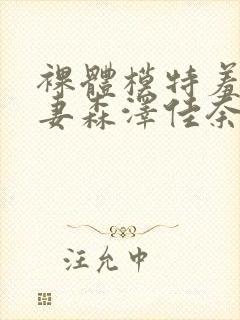 裸體模特羞
妻森澤佳奈
汪允中